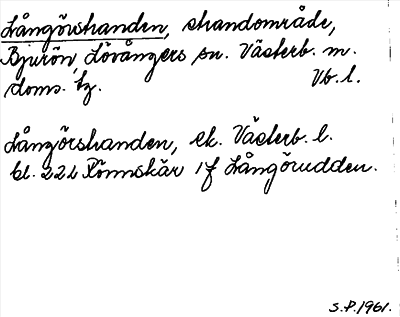 Långörshanden, strandområde,
Bjurön, Lövångers sn. Västerb. m.
doms. tg. Vb. l.
Långörshanden, ek. Västerb. l.
bl. 22L Rönnskär 1f Långörudden.
S.P. 1961.